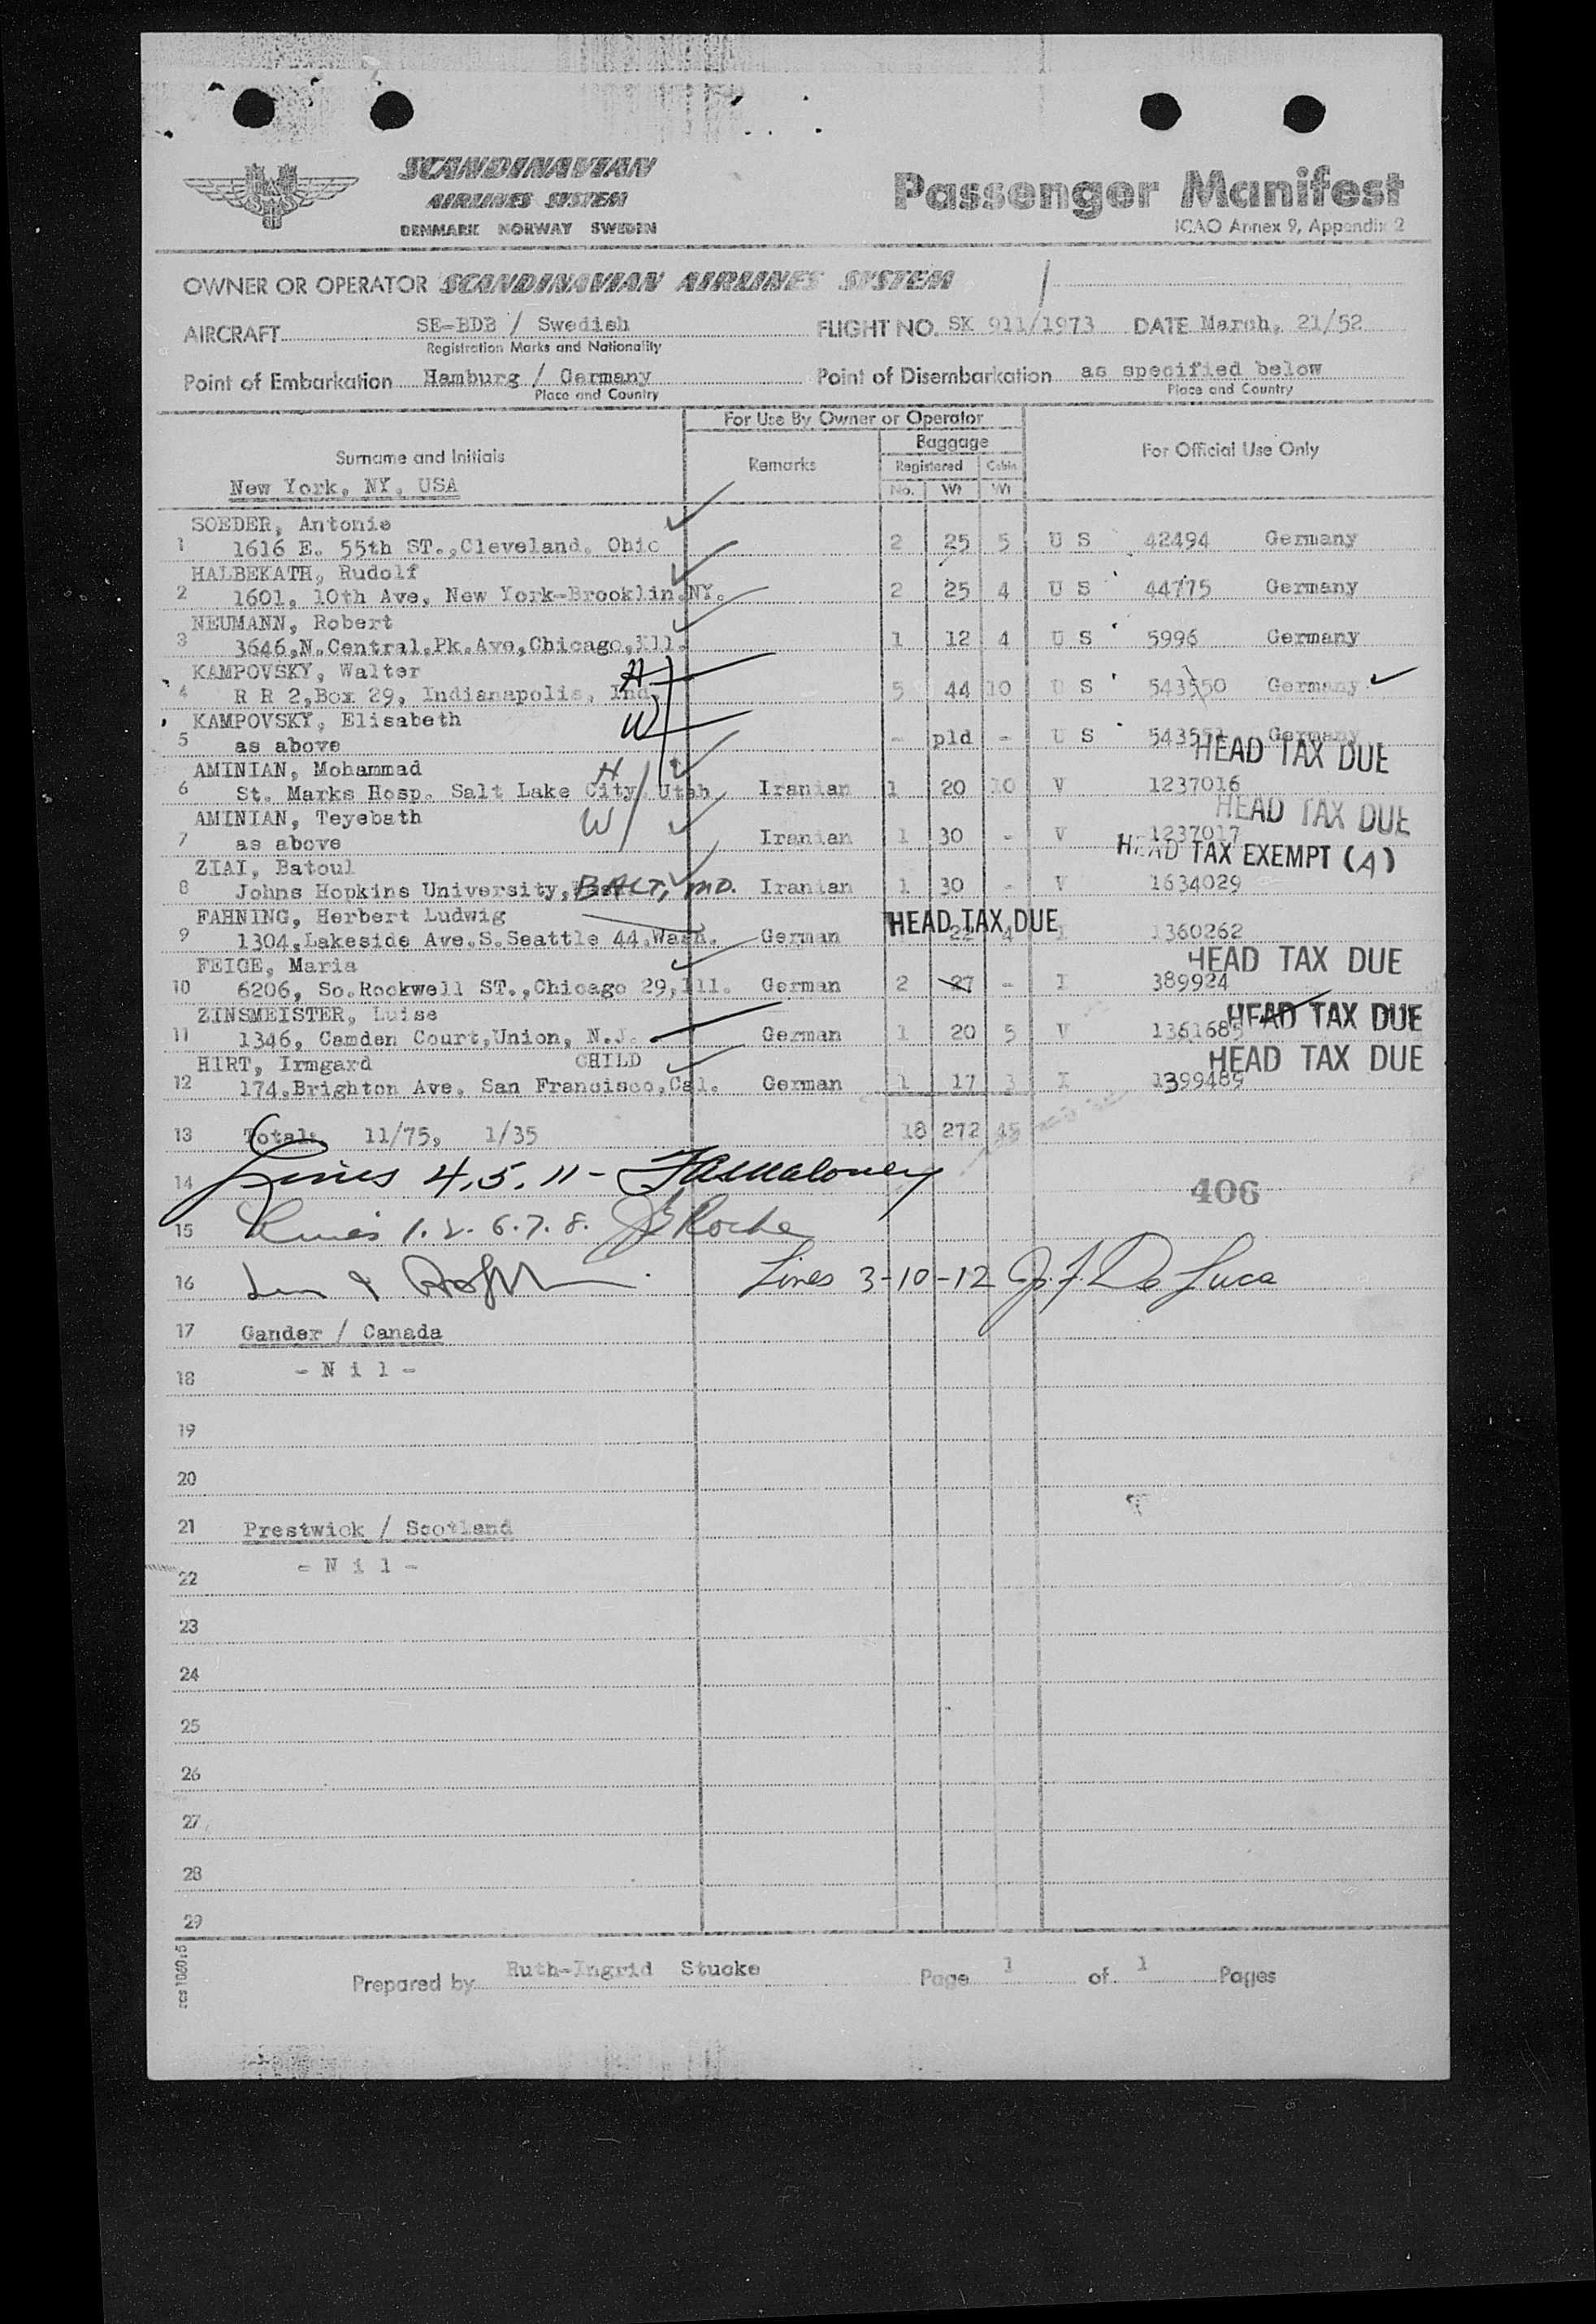 SCANDINAVIAN
AIRLINES SYSTEM
DENMARK NORWAY SWEDEN
Passenger Manifest
ICAO Annex 9, Appendix 2
OWNER OR OPERATOR SCANDINAVIAN AIRLINES SYSTEM
AIRCRAFT SE-BDB / Swedish FLIGHT NO. SK 911/1973 DATE March, 21/52
Registration Marks and Nationality
Point of Embarkation Hamburg / Germany Point of Disembarkation as specified below
Place and Country Place and Country
For Use By Owner or Operator
Surname and Initials Remarks Baggage For Official Use Only
Registered Cabin
New York, NY, USA No. Wt Wt
SOEDER, Antonie
1 1616 E. 55th ST.,Cleveland. Ohio 2 25 5 U S 42494 Germany
HALBEKATH, Rudolf
2 1601, 10th Ave, New York-Brooklin,NY. 2 25 4 U S 44775 Germany
NEUMANN, Robert
3 3646,N.Central,Pk.Ave,Chicago,Ill. 1 12 4 U S 5996 Germany
KAMPOVSKY, Walter H
4 R R 2,Box 29, Indianapolis, Ind. 5 44 10 U S 543550 Germany
KAMPOVSKY, Elisabeth W
5 as above - pld - U S 543551 Germany
HEAD TAX DUE
AMINIAN, Mohammad H
6 St. Marks Hosp. Salt Lake City, Utah Iranian 1 20 10 V 1237016
HEAD TAX DUE
AMINIAN, Teyebath W
7 as above Iranian 1 30 - V 1237017
HEAD TAX EXEMPT (A)
ZIAI, Batoul
8 Johns Hopkins University, BALT, MD. Iranian 1 30 - V 1634029
FAHNING, Herbert Ludwig HEAD TAX DUE
9 1304,Lakeside Ave.S.Seattle 44,Wash. German 22 4 I 1360262
HEAD TAX DUE
FEIGE, Maria
10 6206, So.Rockwell ST.,Chicago 29,Ill. German 2 27 - I 389924
ZINSMEISTER, Luise HEAD TAX DUE
11 1346, Camden Court,Union, N.J. German 1 20 5 V 1361685
HIRT, Irmgard CHILD HEAD TAX DUE
12 174,Brighton Ave. San Francisco,Cal. German 1 17 3 I 1399489
13 Total: 11/75, 1/35 18 272 45
14 Lines 4, 5, 11 - Maloney
406
15 Lines 1. 2. 6. 7. 8. Roche
16 Lines 3-10-12 J. F. De Luca
17 Gander / Canada
18 - N i l -
19
20
21 Prestwick / Scotland
22 - N i l -
23
24
25
26
27
28
29
Prepared by Ruth-Ingrid Stucke Page 1 of 1 Pages